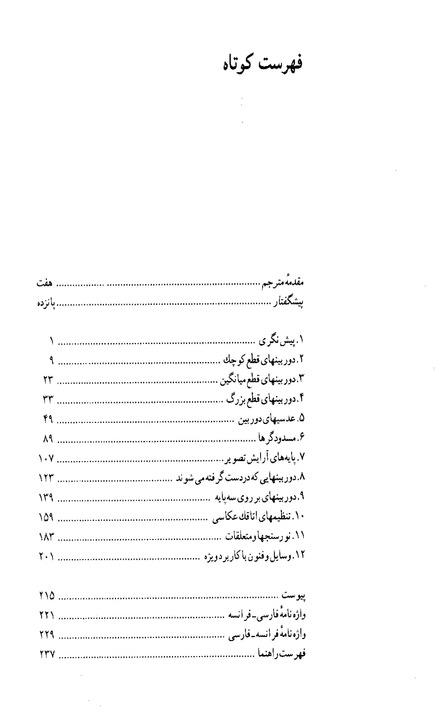 فهرست کوتاه
مقدمهٔ مترجم ........ هفت
پیشگفتار ........ پانزده
۱. پیش نگری ........ ۱
۲. دوربینهای قطع کوچك ........ ۹
۳. دوربینهای قطع میانگین ........ ۲۳
۴. دوربینهای قطع بزرگ ........ ۳۳
۵. عدسیهای دوربین ........ ۴۹
۶. مسدودگرها ........ ۸۹
۷. پایه‌های آرایش تصویر ........ ۱۰۷
۸. دوربینهایی که در دست گرفته می‌شوند ........ ۱۲۳
۹. دوربینهای بر روی سه‌پایه ........ ۱۳۹
۱۰. تنظیمهای اتاقك عکاسی ........ ۱۵۹
۱۱. نورسنجها و متعلقات ........ ۱۸۳
۱۲. وسایل و فنون با کاربرد ویژه ........ ۲۰۱
پیوست ........ ۲۱۵
واژه نامهٔ فارسی-فرانسه ........ ۲۲۱
واژه نامهٔ فرانسه-فارسی ........ ۲۲۹
فهرست راهنما ........ ۲۳۷